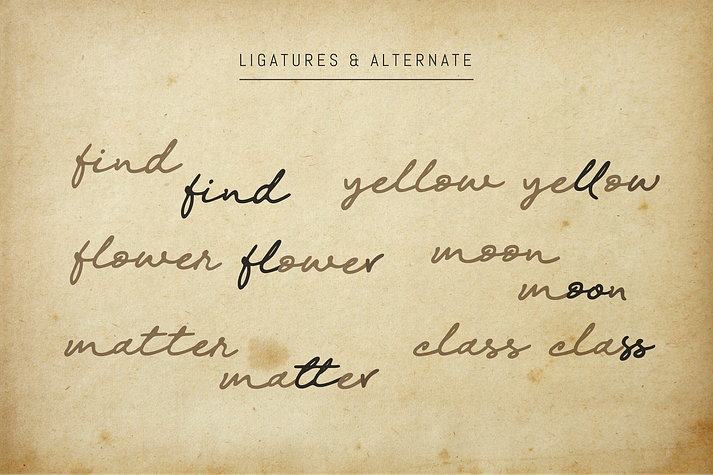 LIGATURES & ALTERNATE
find find yellow yellow
flower flower moon moon
matter matter class class